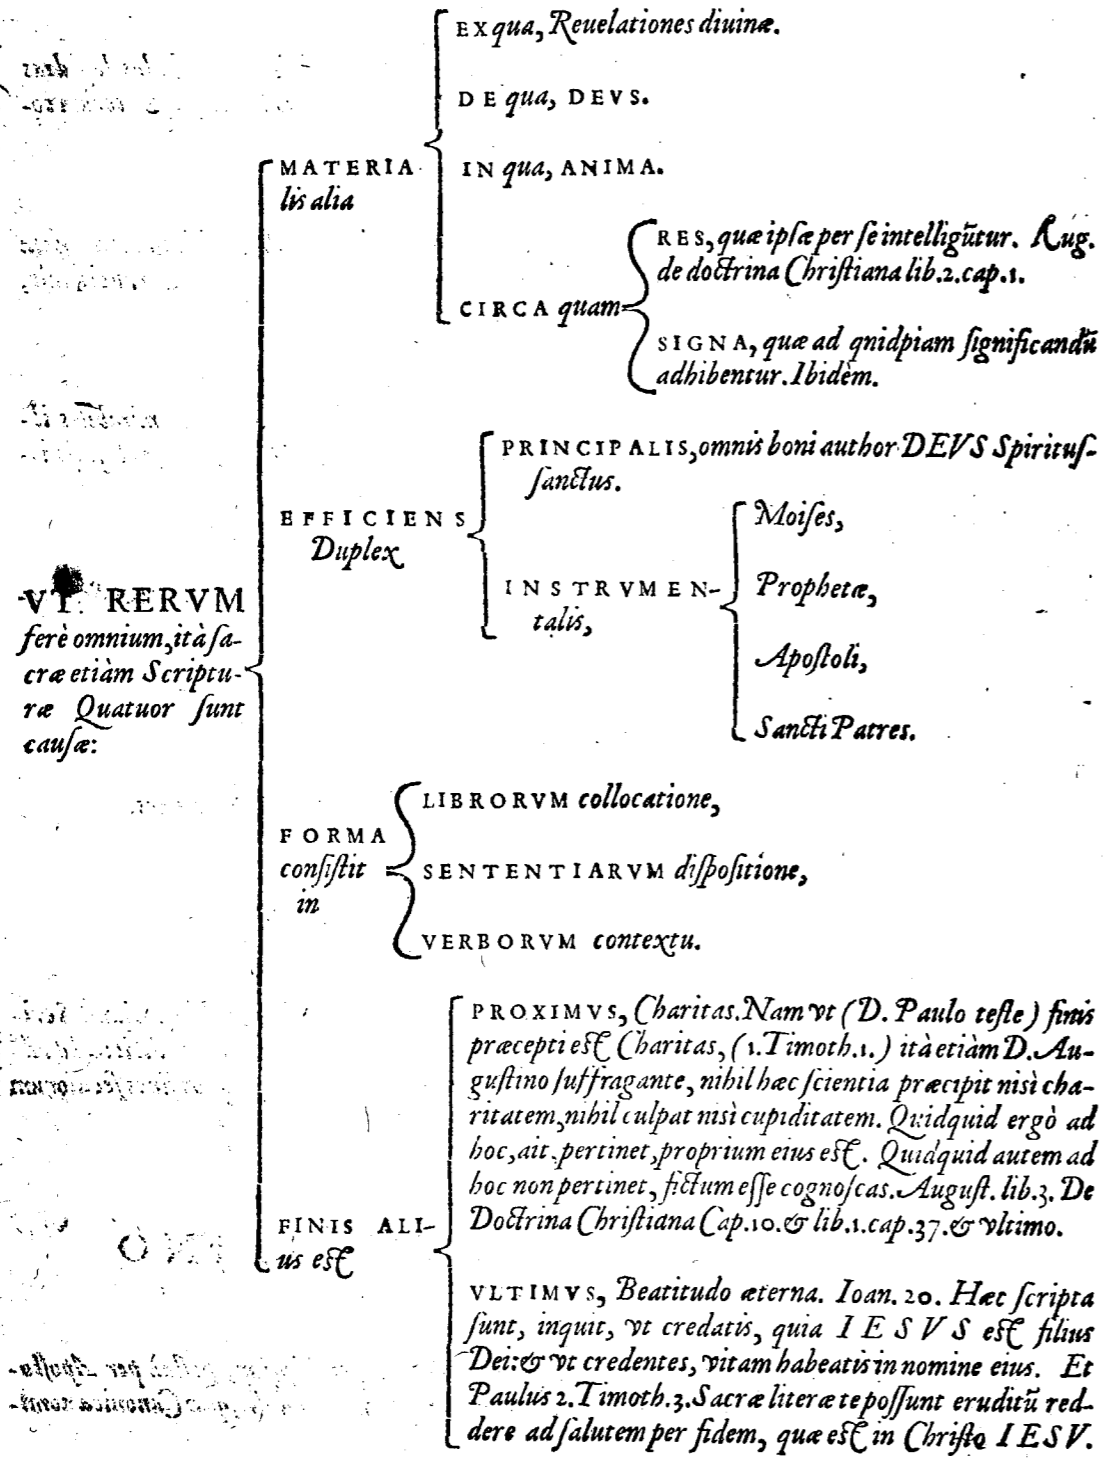 VT RERVM
ferè omnium, ità sa-
cræ etiàm Scriptu-
ræ Quatuor sunt
causæ:
MATERIA
lis alia
EX qua, Reuelationes diuinæ.
DE qua, DEVS.
IN qua, ANIMA.
CIRCA quam
RES, quæ ipsæ per se intelligũtur. Aug.
de doctrina Christiana lib.2.cap.1.
SIGNA, quæ ad qnidpiam significandũ
adhibentur. Ibidèm.
EFFICIENS
Duplex
PRINCIPALIS, omnis boni author DEVS Spiritus-
sanctus.
INSTRVMEN-
talis,
Moises,
Prophetæ,
Apostoli,
Sancti Patres.
FORMA
consistit
in
LIBRORVM collocatione,
SENTENTIARVM dispositione,
VERBORVM contextu.
FINIS ALI-
us est
PROXIMVS, Charitas. Nam vt (D. Paulo teste) finis
præcepti est Charitas, (1.Timoth.1.) ità etiàm D. Au-
gustino suffragante, nihil hæc scientia præcipit nisì cha-
ritatem, nihil culpat nisì cupiditatem. Quidquid ergò ad
hoc, ait, pertinet, proprium eius est. Quidquid autem ad
hoc non pertinet, fictum esse cognoscas. August. lib.3. De
Doctrina Christiana Cap.10. & lib.1.cap.37. & vltimo.
VLTIMVS, Beatitudo æterna. Ioan. 20. Hæc scripta
sunt, inquit, vt credatis, quia IESVS est filius
Dei: & vt credentes, vitam habeatis in nomine eius. Et
Paulus 2.Timoth.3. Sacræ literæ te possunt eruditũ red-
dere ad salutem per fidem, quæ est in Christo IESV.